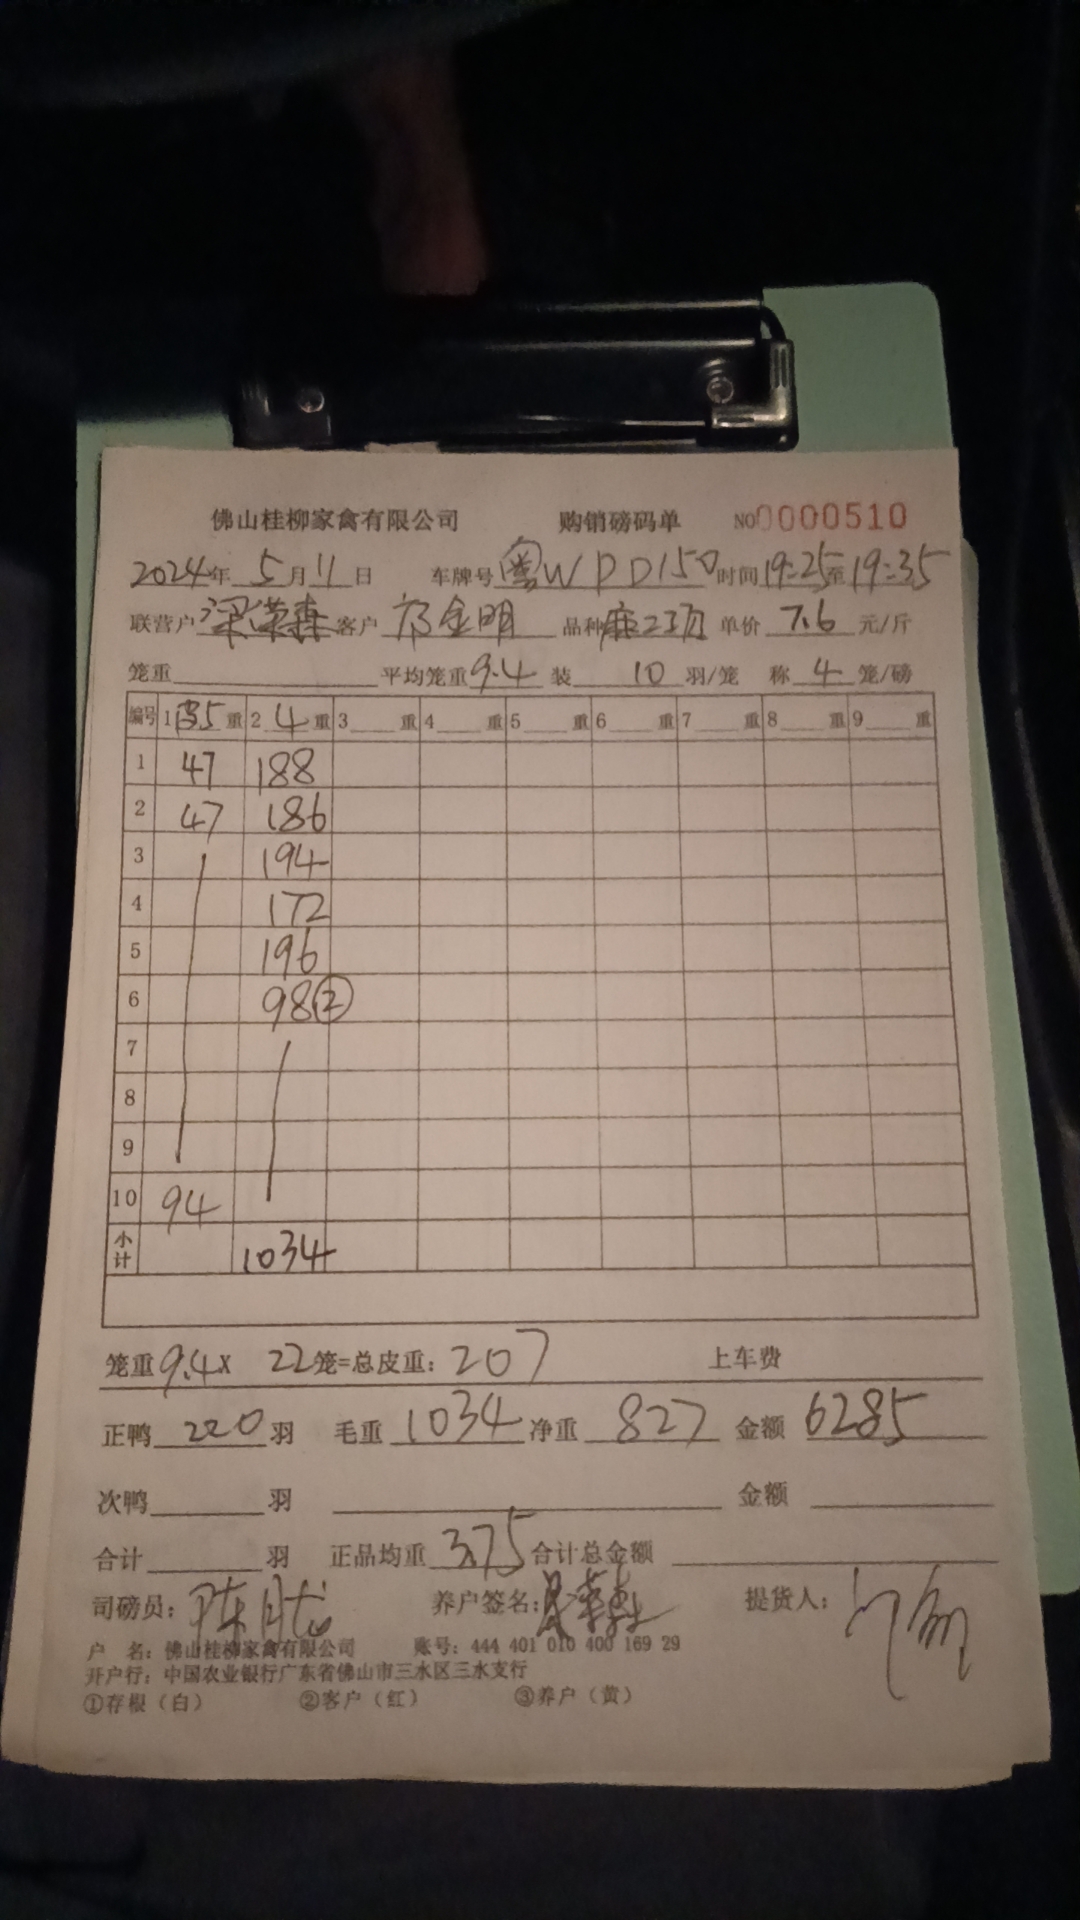 佛山桂柳家禽有限公司 购销磅码单 NO0000510
2024年 5月 11日 车牌号 粤WPD150 时间 19:25至19:35
联营户 梁荣森 客户 金明 品种 单价 7.6 元/斤
笼重 平均笼重 9.4 装 10 羽/笼 称 4 笼/磅
编号 1 皮5 重 2 4 重 3 重 4 重 5 重 6 重 7 重 8 重 9 重
1 47 188
2 47 186
3 194
4 172
5 196
6 98②
7
8
9
10 94
小计 1034
笼重 9.4 X 22 笼=总皮重: 207 上车费
正鸭 220 羽 毛重 1034 净重 827 金额 6285
次鸭 羽 金额
合计 羽 正品均重 3.75 合计总金额
司磅员: 陈 养户签名: 提货人:
户 名: 佛山桂柳家禽有限公司 账号: 444 401 010 400 169 29
开户行: 中国农业银行广东省佛山市三水区三水支行
①存根（白） ②客户（红） ③养户（黄）